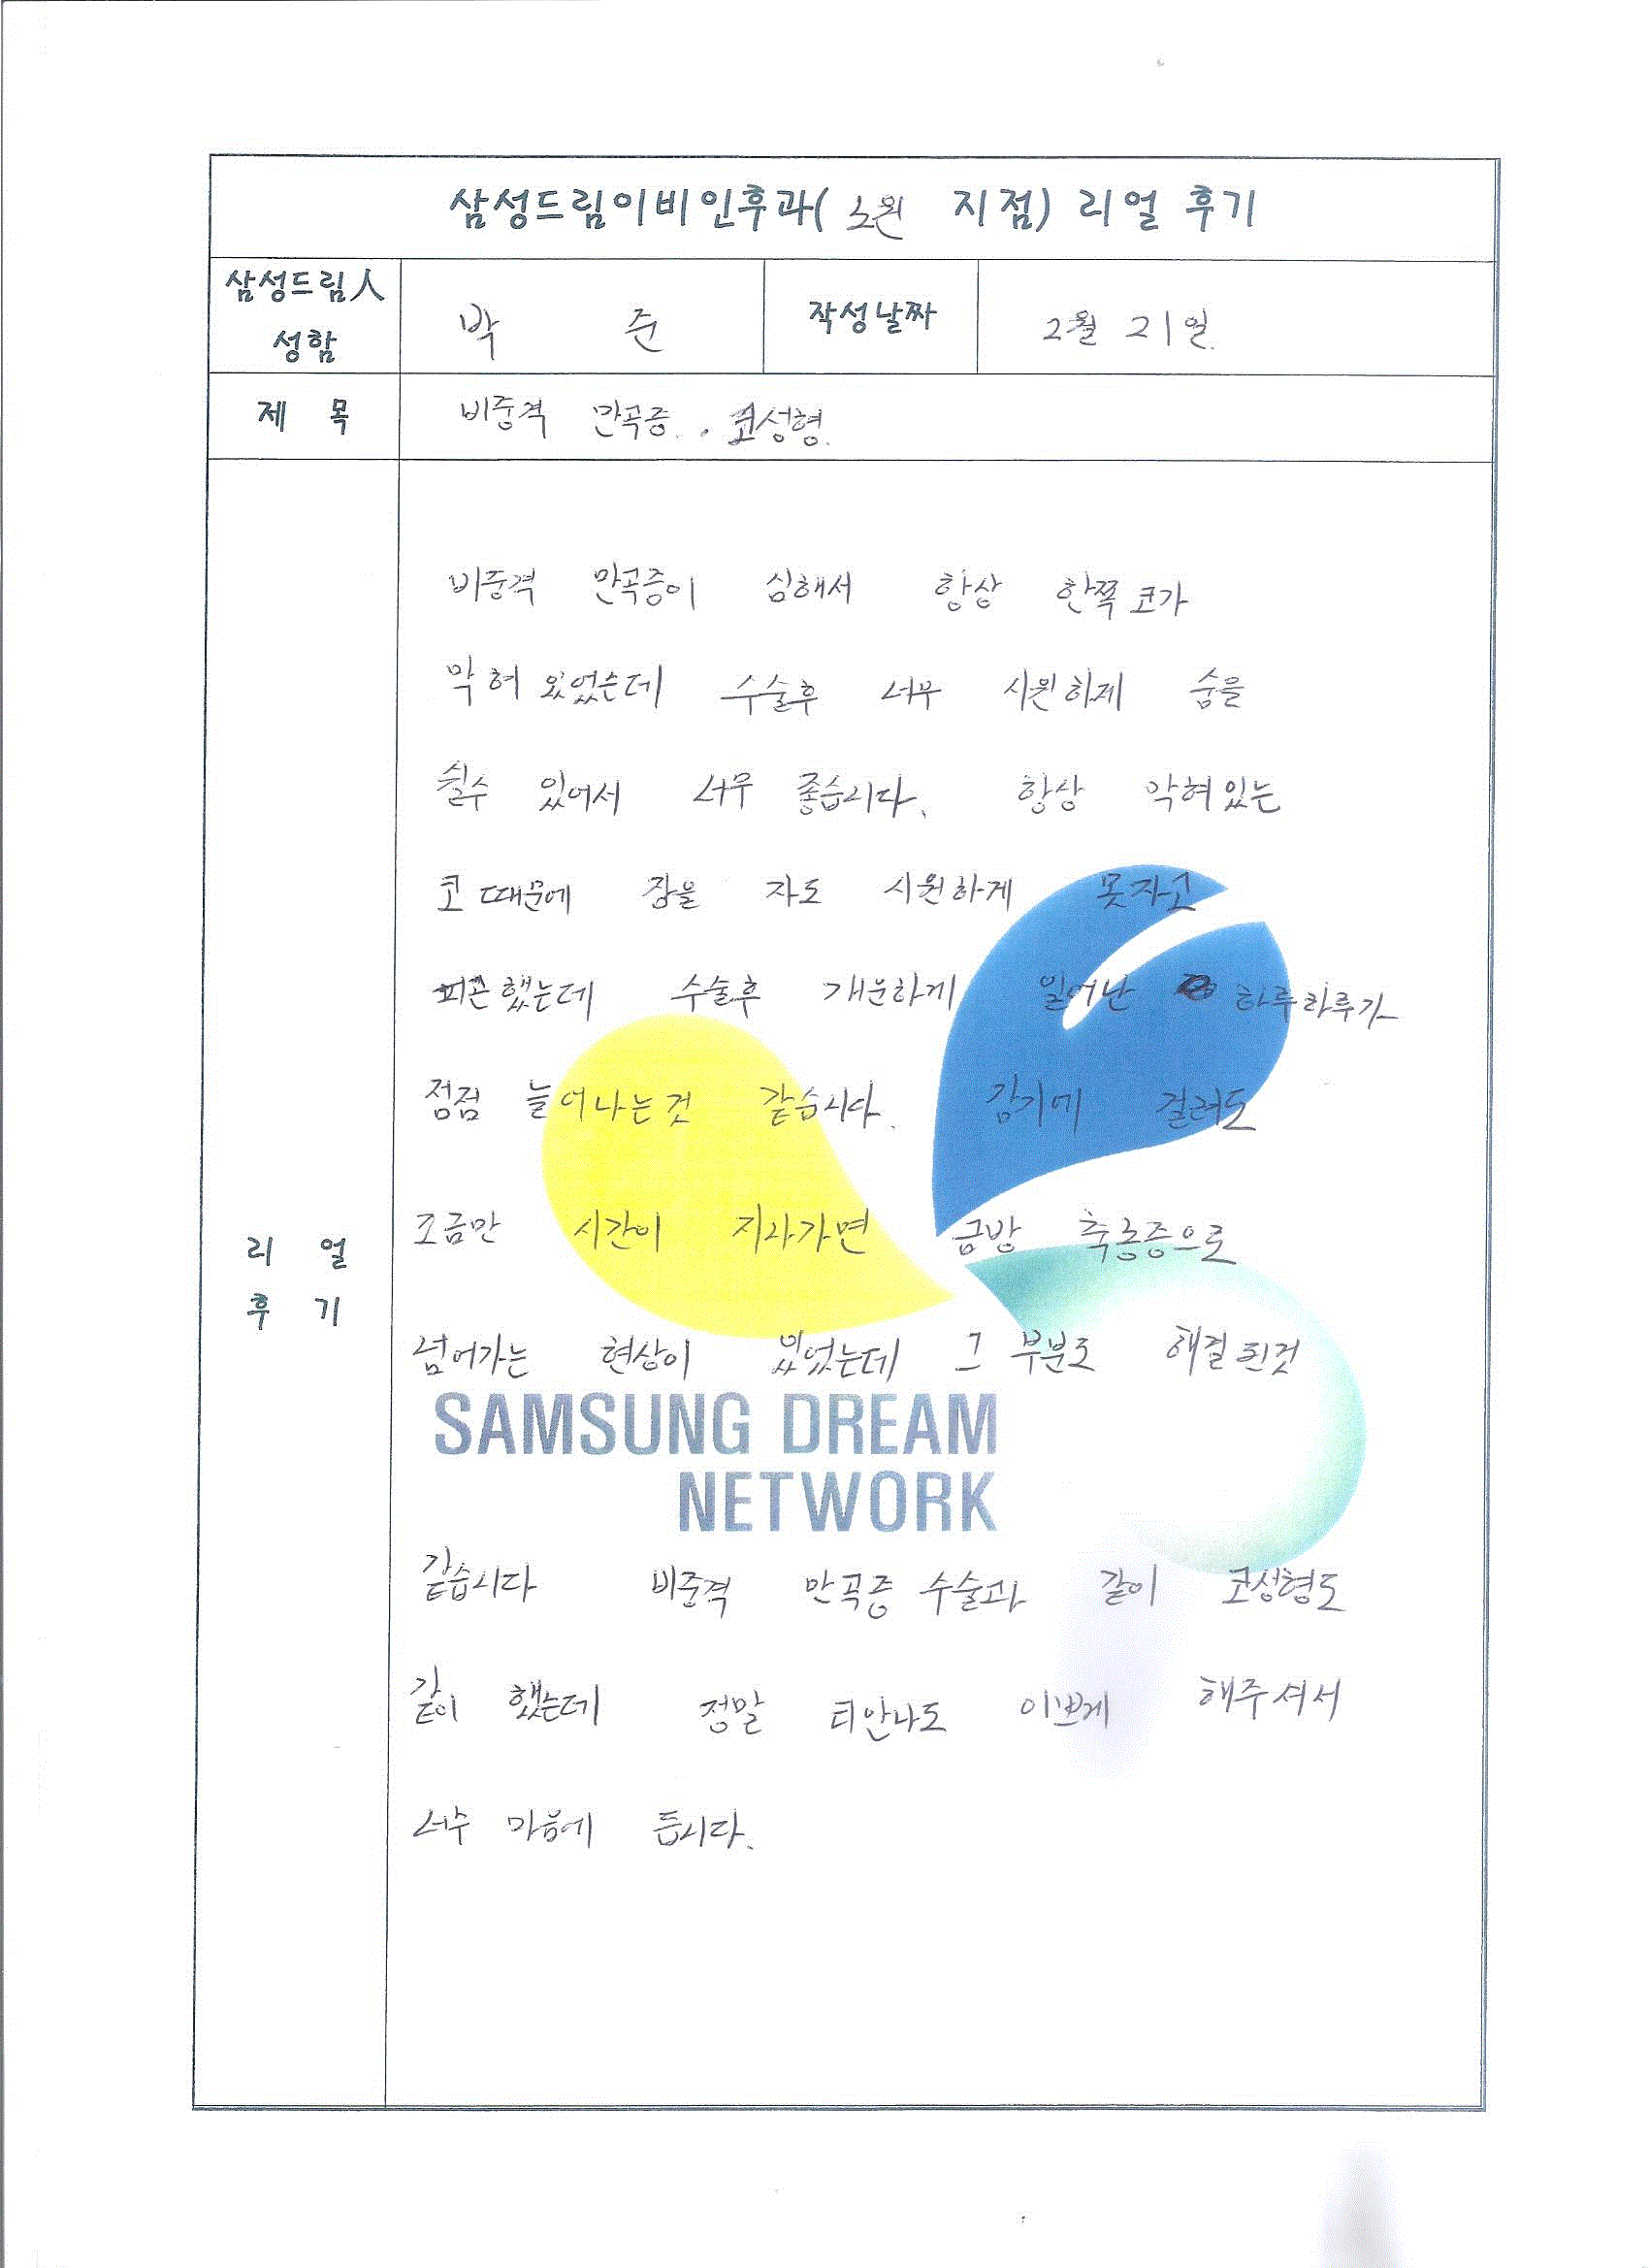 삼성드림이비인후과( 노원 지점) 리얼 후기
삼성드림人
성함
박 준
작성날짜
2월 21일.
제 목
비중격 만곡증. . 코성형.
비중격 만곡증이 심해서 항상 한쪽 코가
막혀 있었는데 수술후 너무 시원하게 숨을
쉴수 있어서 너무 좋습니다. 항상 막혀있는
코 때문에 잠을 자도 시원하게 못자고
피곤했는데 수술후 개운하게 일어난 하루하루가
점점 늘어나는것 같습니다. 감기에 걸려도
조금만 시간이 지나가면 금방 축농증으로
리 얼
후 기
넘어가는 현상이 있었는데 그 부분도 해결된것
SAMSUNG DREAM
NETWORK
같습니다 비중격 만곡증 수술과 같이 코성형도
같이 했는데 정말 티안나도 이쁘게 해주셔서
너무 마음에 듭니다.